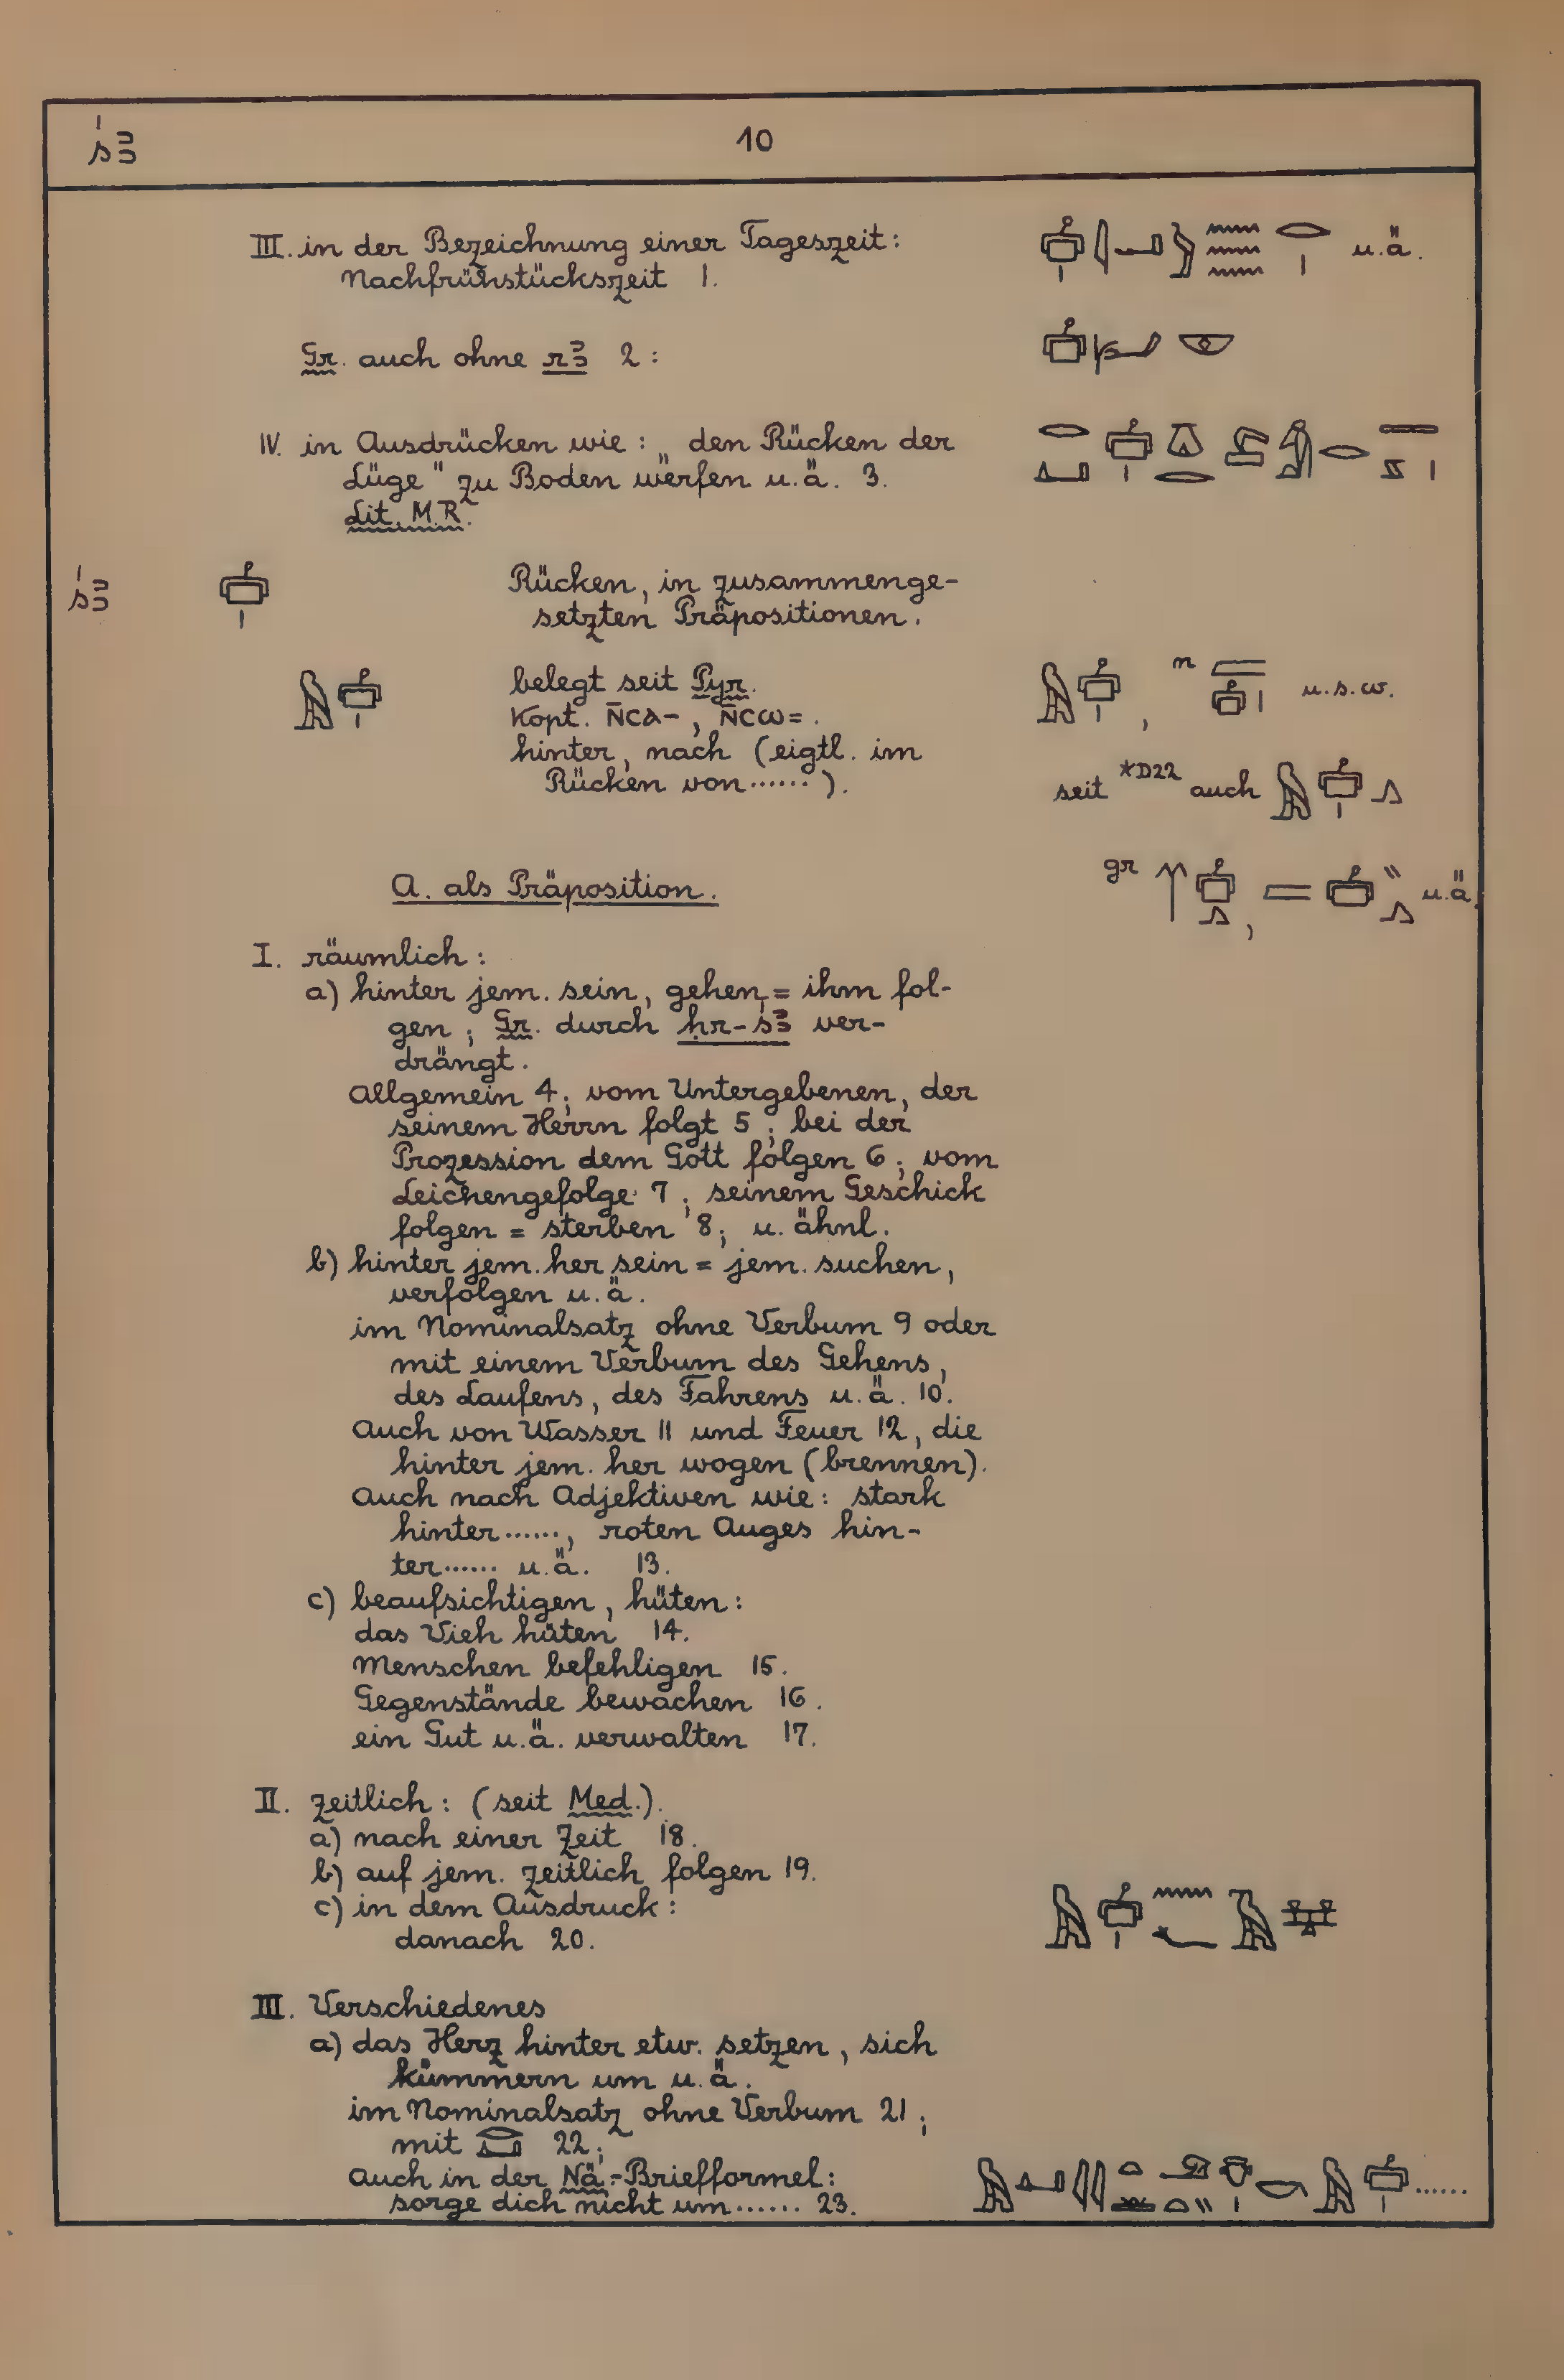 ś3 10
III. in der Bezeichnung einer Tageszeit: u.ä.
Nachfrühstückszeit 1.
Gr. auch ohne r3 2:
IV. in Ausdrücken wie: „den Rücken der
Lüge" zu Boden werfen u.ä. 3.
Lit. M.R.
ś3 Rücken, in zusammenge-
setzten Präpositionen.
belegt seit Pyr. , n u.s.w.
Kopt. N̄CA-, N̄CW=.
hinter, nach (eigtl. im
Rücken von......). seit *D22 auch
A. als Präposition. gr , u.ä.
I. räumlich:
a) hinter jem. sein, gehen, = ihm fol-
gen; Gr. durch ḥr-ś3 ver-
drängt.
Allgemein 4; vom Untergebenen, der
seinem Herrn folgt 5; bei der
Prozession dem Gott folgen 6; vom
Leichengefolge 7; seinem Geschick
folgen = sterben 8; u. ähnl.
b) hinter jem. her sein = jem. suchen,
verfolgen u.ä.
im Nominalsatz ohne Verbum 9 oder
mit einem Verbum des Gehens,
des Laufens, des Fahrens u.ä. 10.
Auch von Wasser 11 und Feuer 12, die
hinter jem. her wogen (brennen).
Auch nach Adjektiven wie: stark
hinter......, roten Auges hin-
ter...... u.ä. 13.
c) beaufsichtigen, hüten:
das Vieh hüten 14.
Menschen befehligen 15.
Gegenstände bewachen 16.
ein Gut u.ä. verwalten 17.
II. zeitlich: (seit Med.).
a) nach einer Zeit 18.
b) auf jem. zeitlich folgen 19.
c) in dem Ausdruck:
danach 20.
III. Verschiedenes
a) das Herz hinter etw. setzen, sich
kümmern um u.ä.
im Nominalsatz ohne Verbum 21;
mit 22;
Auch in der Nä.-Briefformel:
sorge dich nicht um...... 23. ......